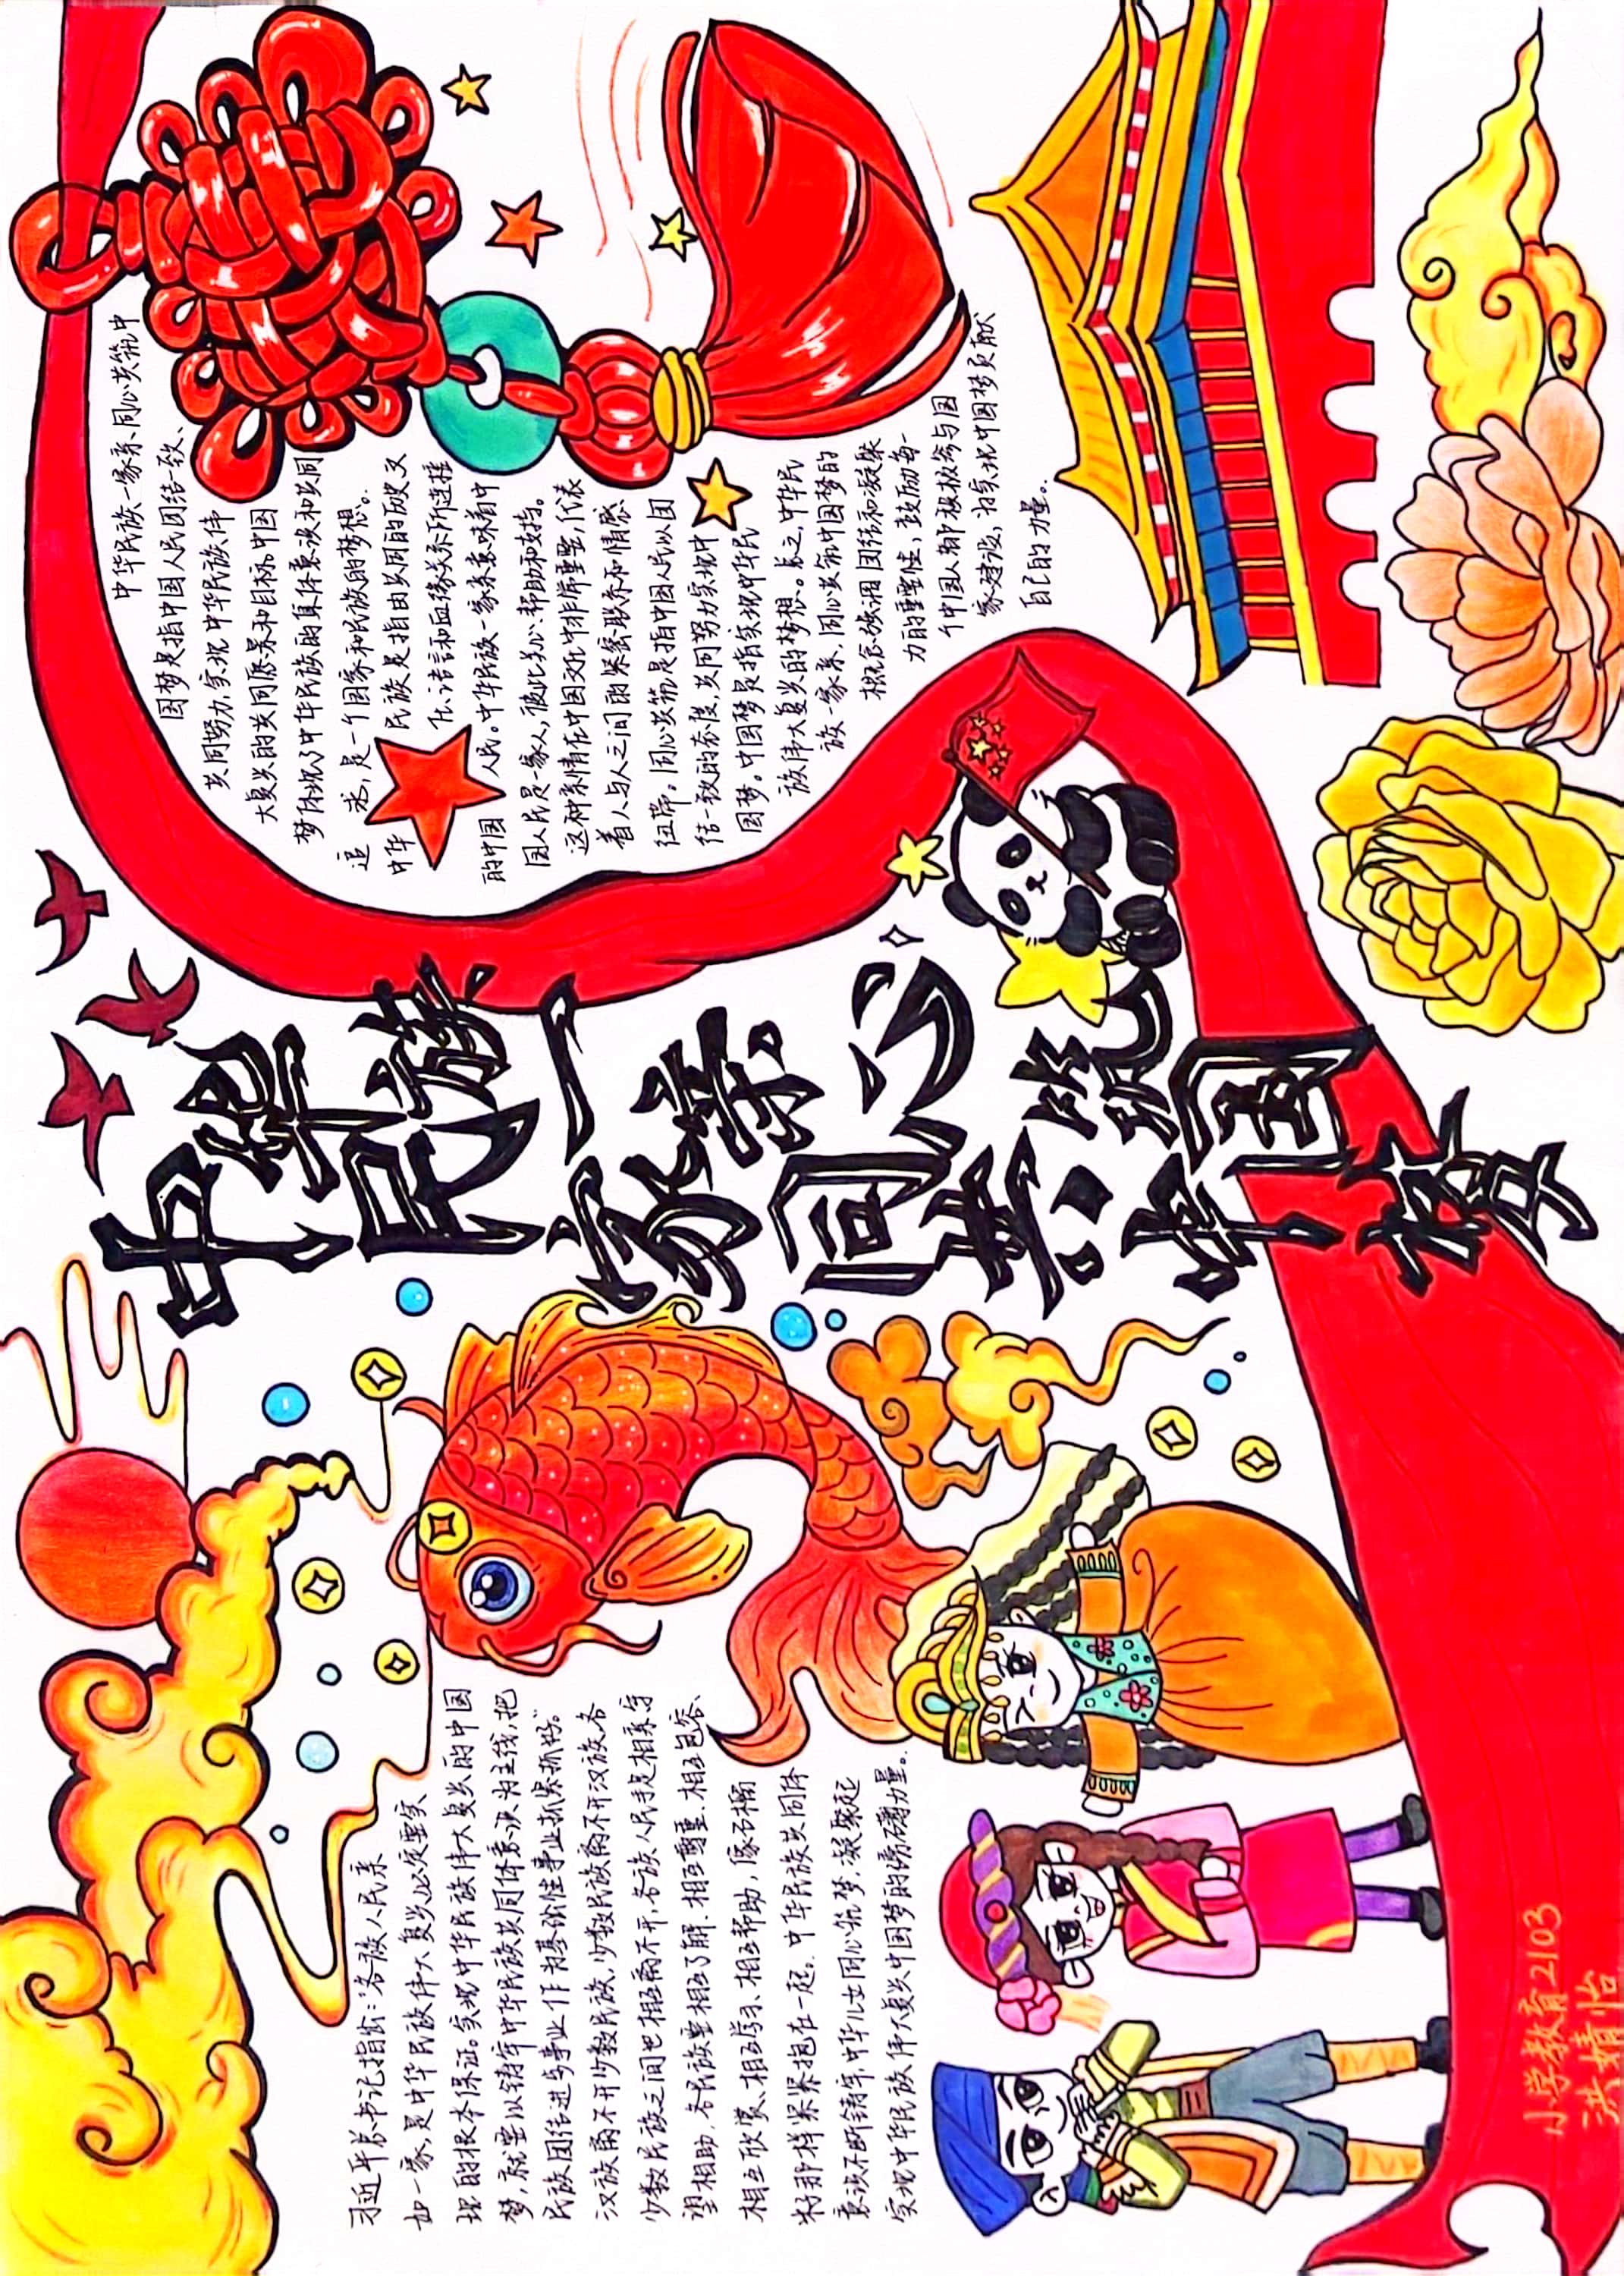 中华民族一家亲同心共筑中国梦
习近平总书记指出:“各族人民亲
如一家,是中华民族伟大复兴必定要实
现的根本保证。实现中华民族伟大复兴的中国
梦,就要以铸牢中华民族共同体意识为主线,把
民族团结进步事业作为基础性事业抓紧抓好。”
汉族离不开少数民族,少数民族离不开汉族,各
少数民族之间也相互离不开,各族人民手足相亲,守
望相助,各民族要相互了解、相互尊重、相互包容、
相互欣赏、相互学习、相互帮助,像石榴
籽那样紧紧抱在一起。中华民族共同体
意识不断铸牢,中华儿女同心筑梦,凝聚起
实现中华民族伟大复兴中国梦的磅礴力量。
中华民族一家亲、同心共筑中
国梦是指中国人民团结一致、
共同努力,实现中华民族伟
大复兴的共同愿景和目标。中国
梦体现了中华民族的集体意识和共同
追求,是一个国家和民族的梦想。
中华民族是指由共同的历史文
化、语言和血缘关系所连接
的中国人民。中华民族一家亲意味着中
国人民是一家人,彼此关心、帮助和支持。
这种亲情在中国文化中非常重要,代表
着人与人之间的紧密联系和情感
纽带。同心共筑是指中国人民以团
结一致的态度,共同努力实现中
国梦。中国梦是指实现中华民
族伟大复兴的梦想。总之,中华民
族一家亲、同心共筑中国梦的
概念强调团结和凝聚
力的重要性,鼓励每一
个中国人都积极参与国
家建设,为实现中国梦贡献
自己的力量。
小学教育2103
洪婧怡